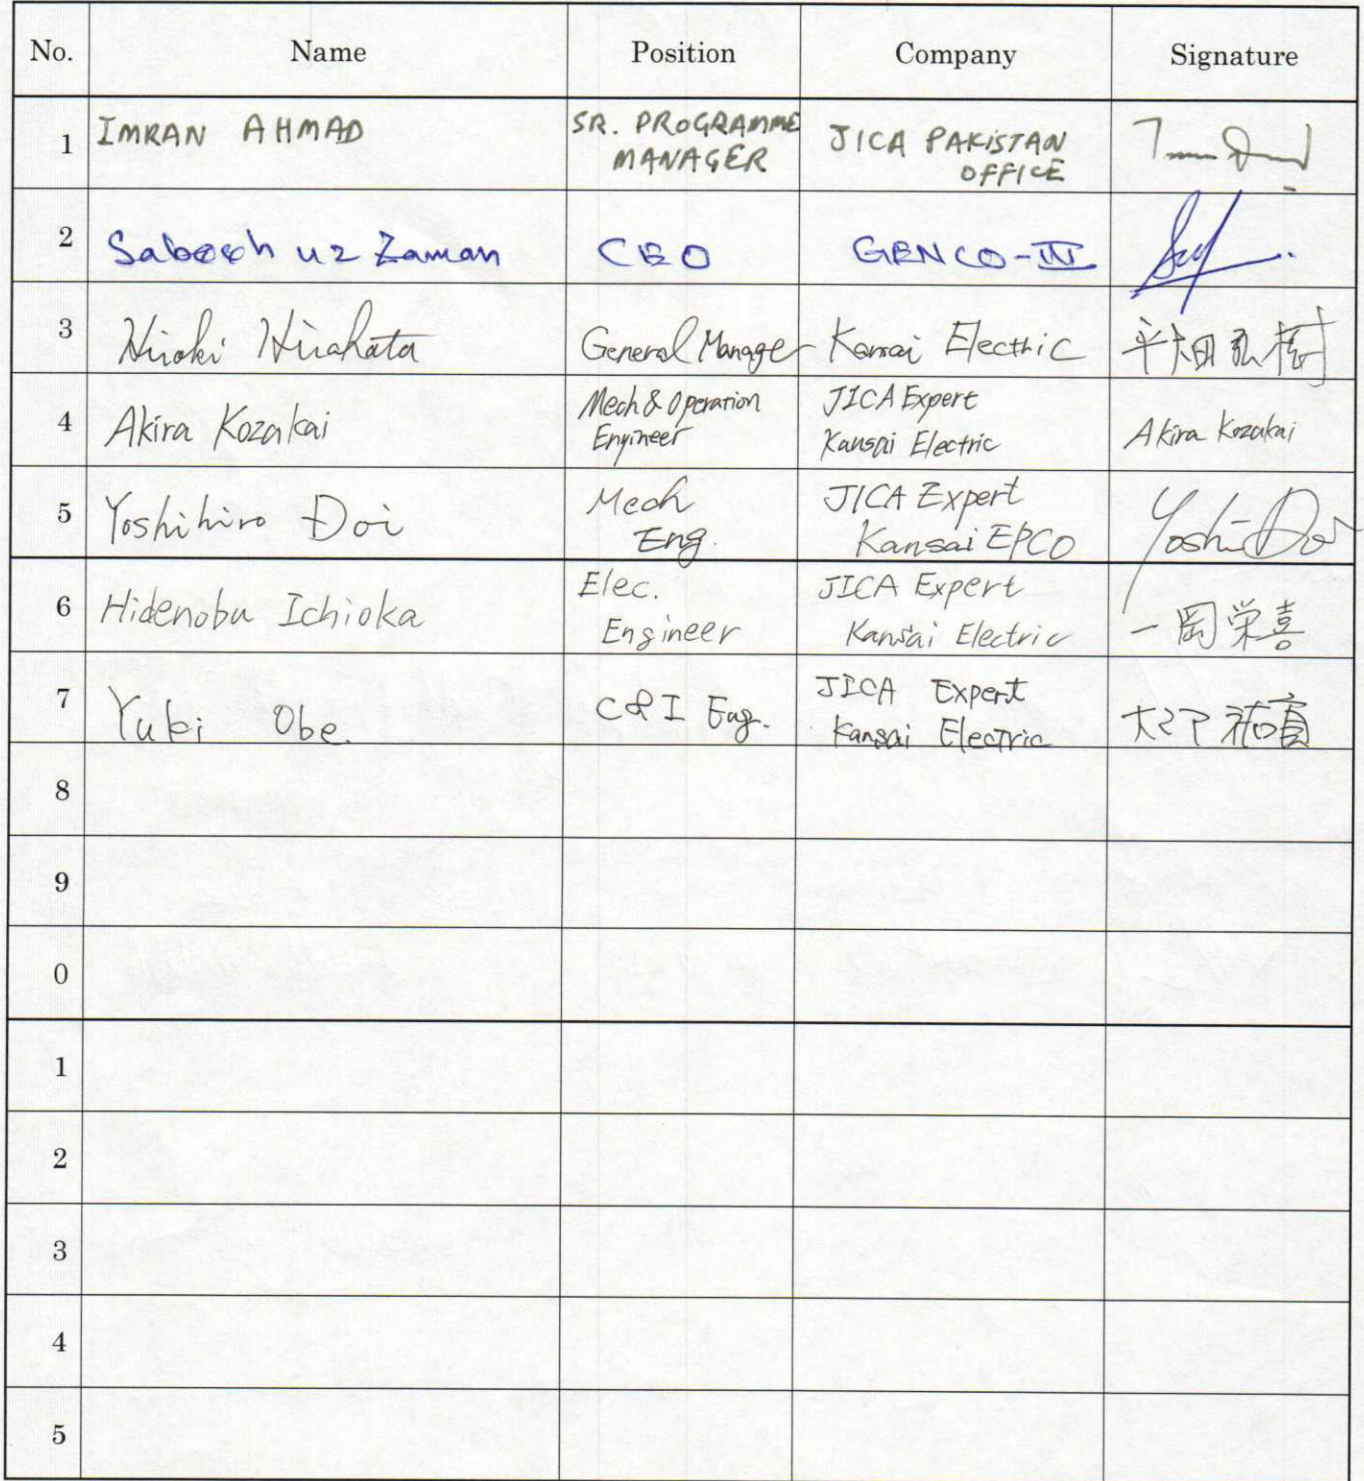 No. Name Position Company Signature
1 IMRAN AHMAD SR. PROGRAMME MANAGER JICA PAKISTAN OFFICE
2 Sabeeh uz Zaman CEO GENCO-III
3 Hiroki Hirahata General Manager Kansai Electric 平畑弘樹
4 Akira Kozakai Mech & Operation Engineer JICA Expert Kansai Electric Akira Kozakai
5 Yoshihiro Doi Mech Eng. JICA Expert Kansai EPCO Yoshi Doi
6 Hidenobu Ichioka Elec. Engineer JICA Expert Kansai Electric 一岡栄喜
7 Yuki Obe. C&I Eng. JICA Expert Kansai Electric
8
9
0
1
2
3
4
5